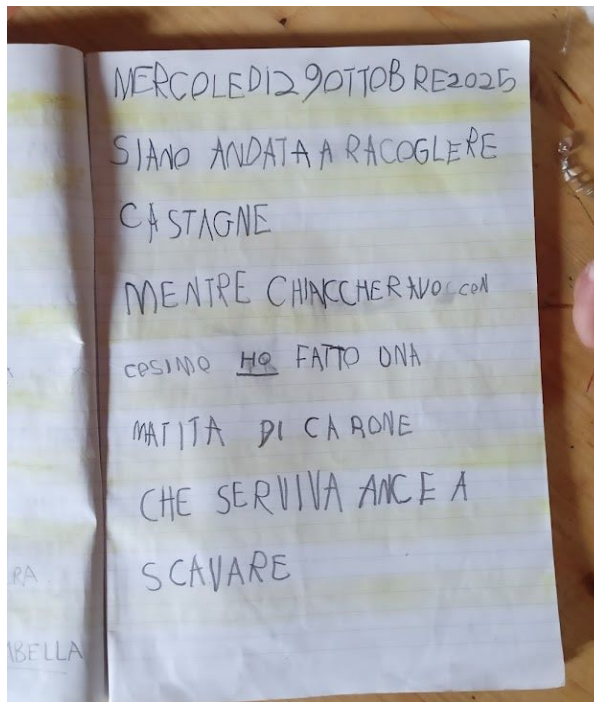 MERCOLEDI29OTTOBRE2025
SIANO ANDATA A RACOGLERE
CASTAGNE
MENTRE CHIACCHERAVO CON
COSIMO HO FATTO UNA
MATITA DI CARONE
CHE SERVIVA ANCE A
SCAVARE
RA
ABELLA